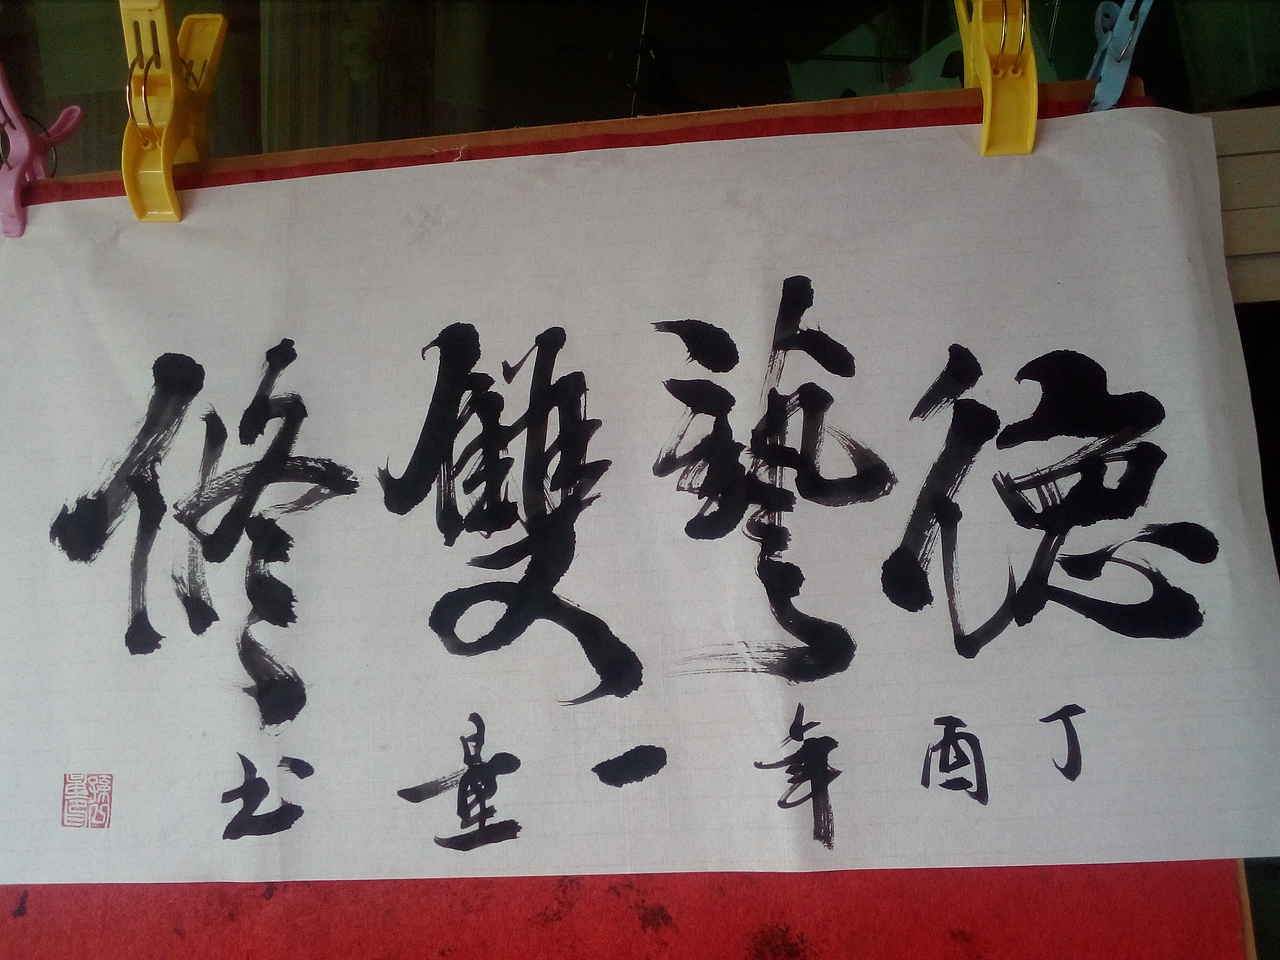 德藝雙修
丁酉年一量书